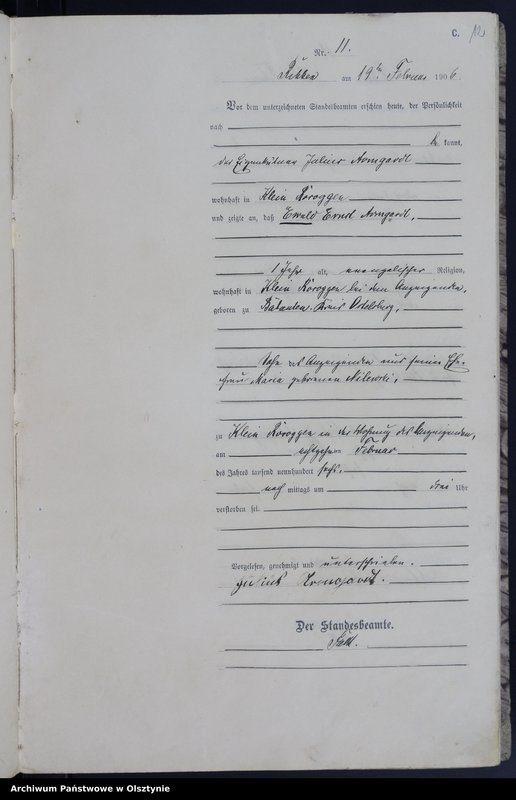 C. 12
Nr. 11.
am 19ten Februar 1906.
Vor dem unterzeichneten Standesbeamten erschien heute, der Persönlichkeit
nach
be kannt,
der Eigenkätner Julius Armgardt
wohnhaft in Klein Röroggen
und zeigte an, daß Ewald Ernst Armgardt,
1 Jahr alt, evangelischer Religion,
wohnhaft in Klein Röroggen bei dem Anzeigenden,
geboren zu Kreis Ortelsburg,
Sohn des Anzeigenden und seiner Ehe-
frau Maria geborenen Milewski,
zu Klein Röroggen in der Wohnung des Anzeigenden,
am achtzehnten Februar
des Jahres tausend neunhundert sechs,
nach mittags um drei Uhr
verstorben sei.
Vorgelesen, genehmigt und unterschrieben.
Der Standesbeamte.
Archiwum Państwowe w Olsztynie